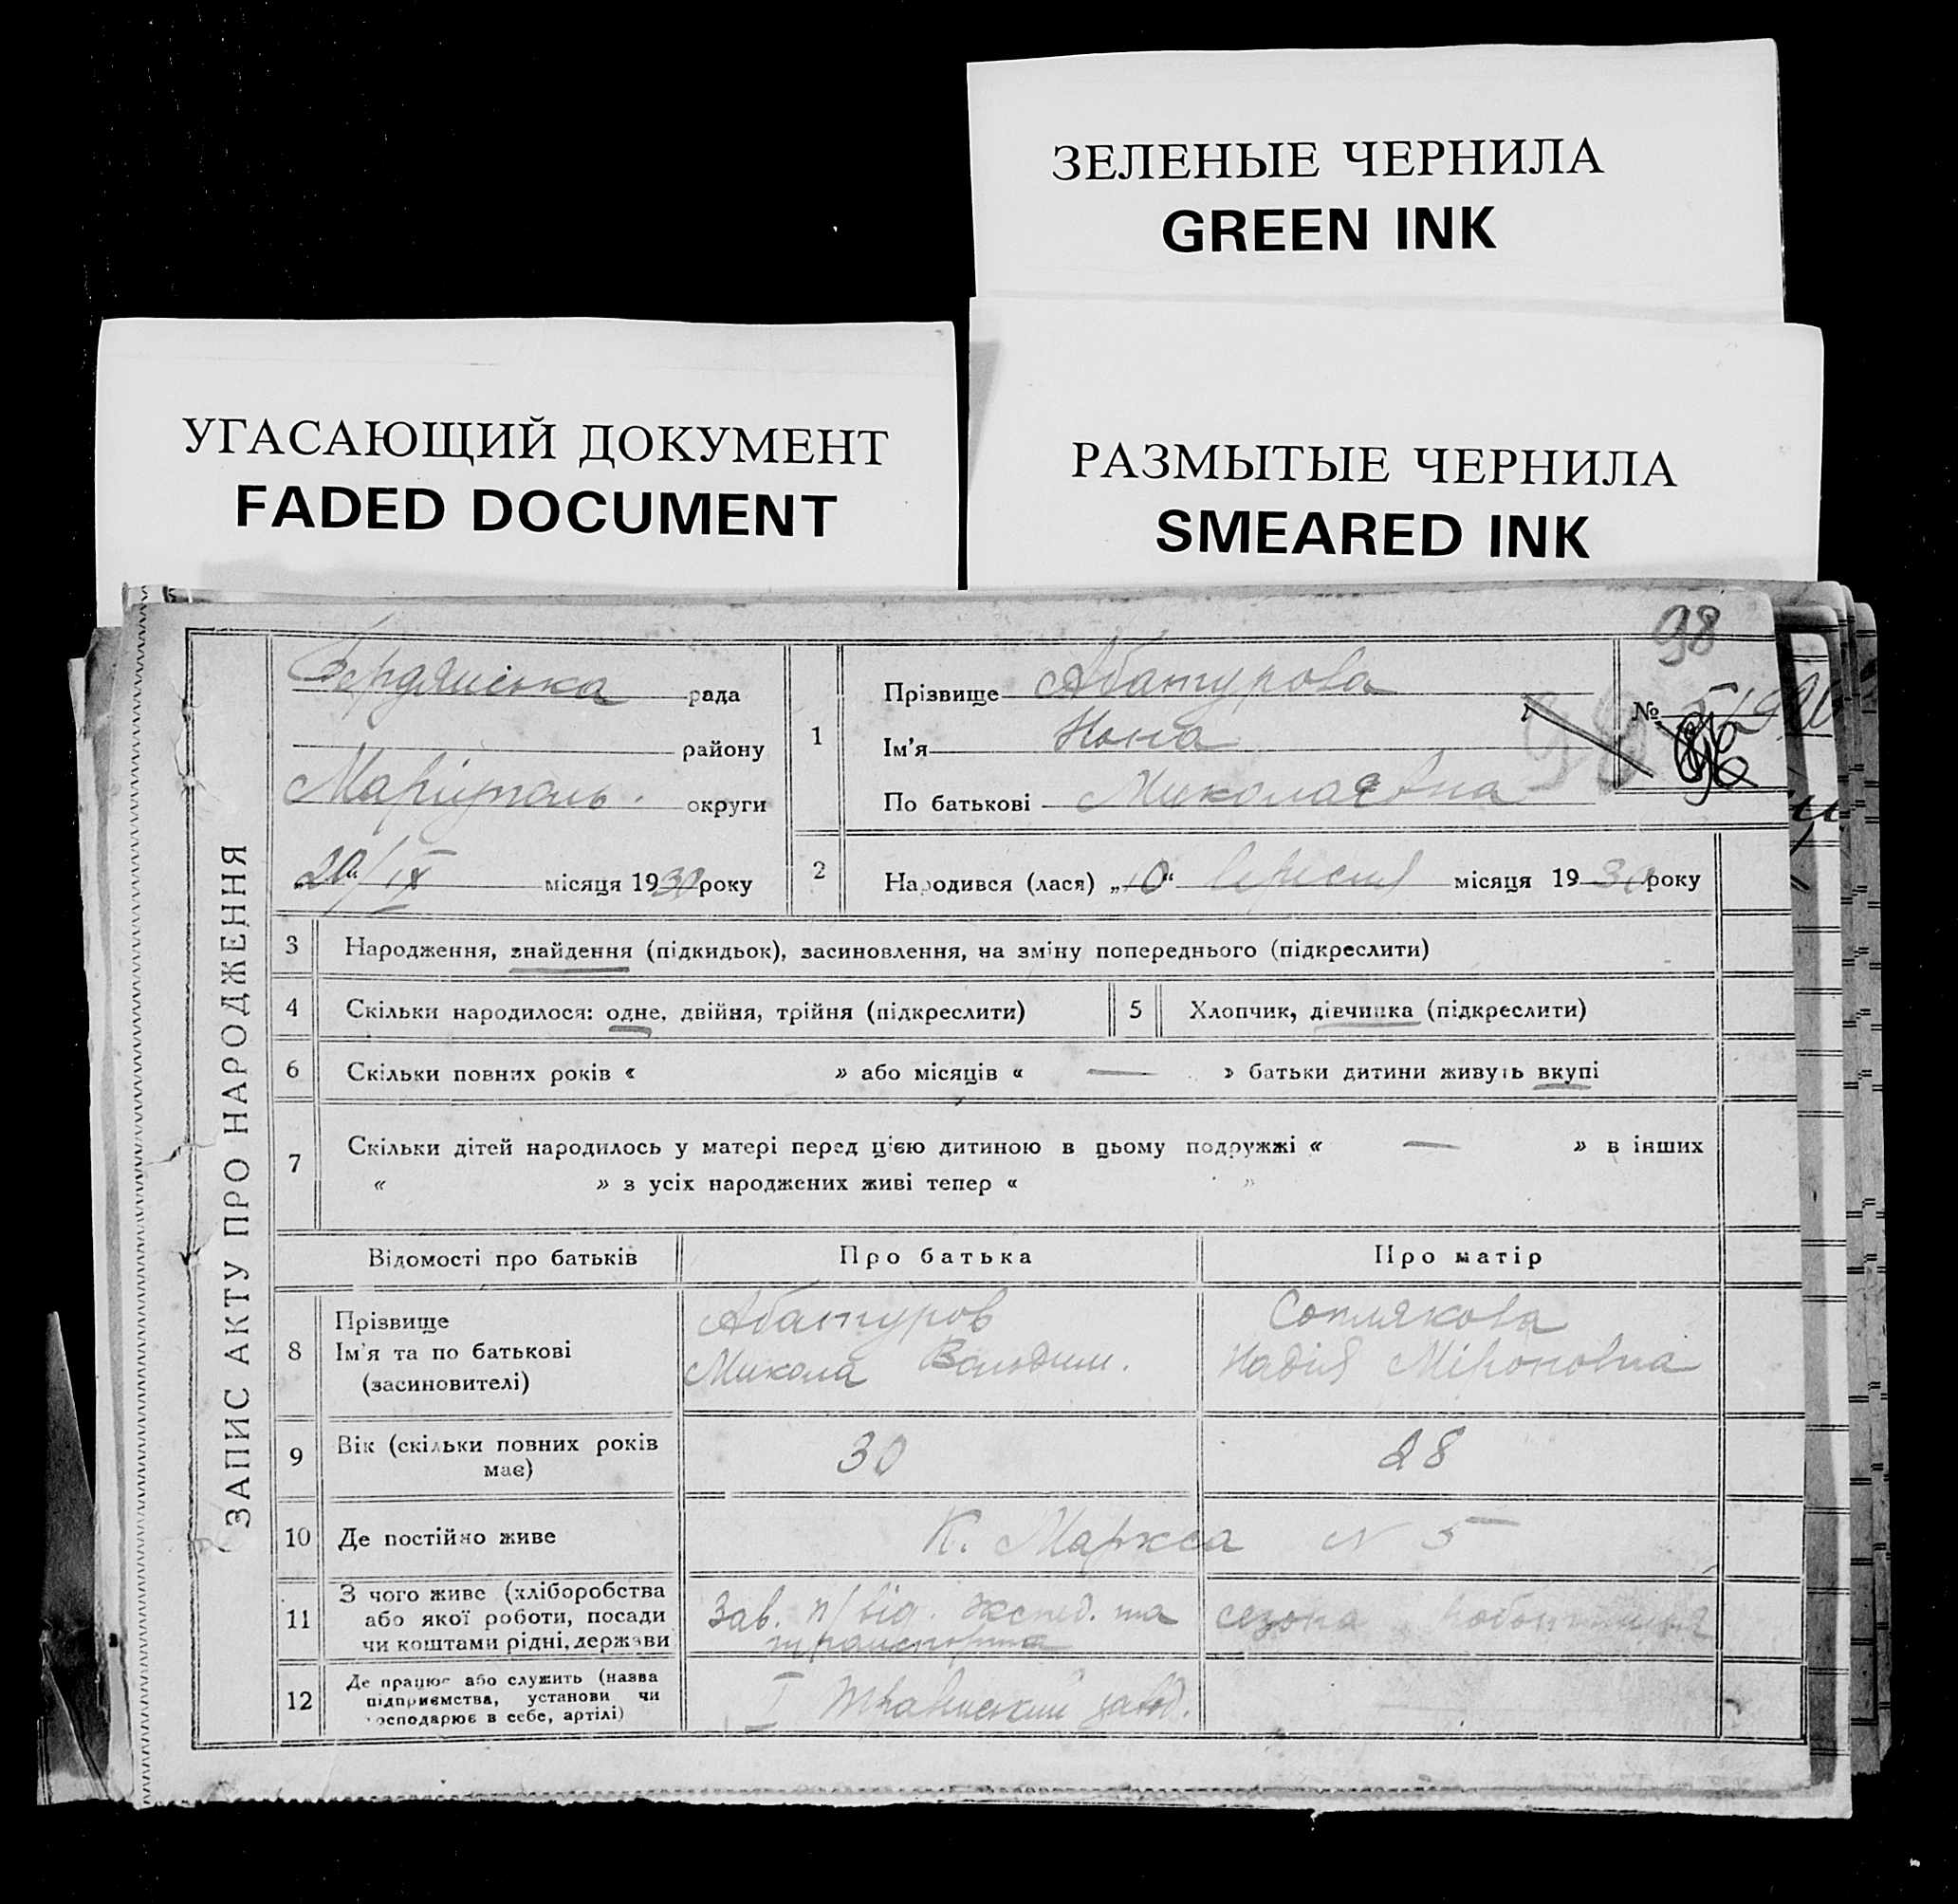 ЗЕЛЕНЫЕ ЧЕРНИЛА
GREEN INK
УГАСАЮЩИЙ ДОКУМЕНТ
FADED DOCUMENT
РАЗМЫТЫЕ ЧЕРНИЛА
SMEARED INK
98
ЗАПИС АКТУ ПРО НАРОДЖЕННЯ
Бердянська рада
району
Маріуполь. округи
20/IX місяця 1930 року
1
Прізвище Абатурова
Ім'я Нона
По батькові Миколаєвна
№
98
2
Народився (лася) „10“ вересня місяця 1930 року
3 Народження, знайдення (підкидьок), засиновлення, на зміну попереднього (підкреслити)
4 Скільки народилося: одне, двійня, трійня (підкреслити)
5 Хлопчик, дівчинка (підкреслити)
6 Скільки повних років « » або місяців « — » батьки дитини живуть вкупі
7 Скільки дітей народилось у матері перед цією дитиною в цьому подружжі « — » в інших
« » з усіх народжених живі тепер « »
Відомості про батьків Про батька Про матір
8
Прізвище
Ім'я та по батькові
(засиновителі)
Абатуров
Микола Володим.
Надія Міроновна
9
Вік (скільки повних років
має)
30
28
10 Де постійно живе
К. Маркса N 5
11
З чого живе (хліборобства
або якої роботи, посади
чи коштами рідні, держави
Зав. п/від. экспед. та
транспорта
сезона
12
Де працює або служить (назва
підприємства, установи чи
господарює в себе, артілі)
I завод.